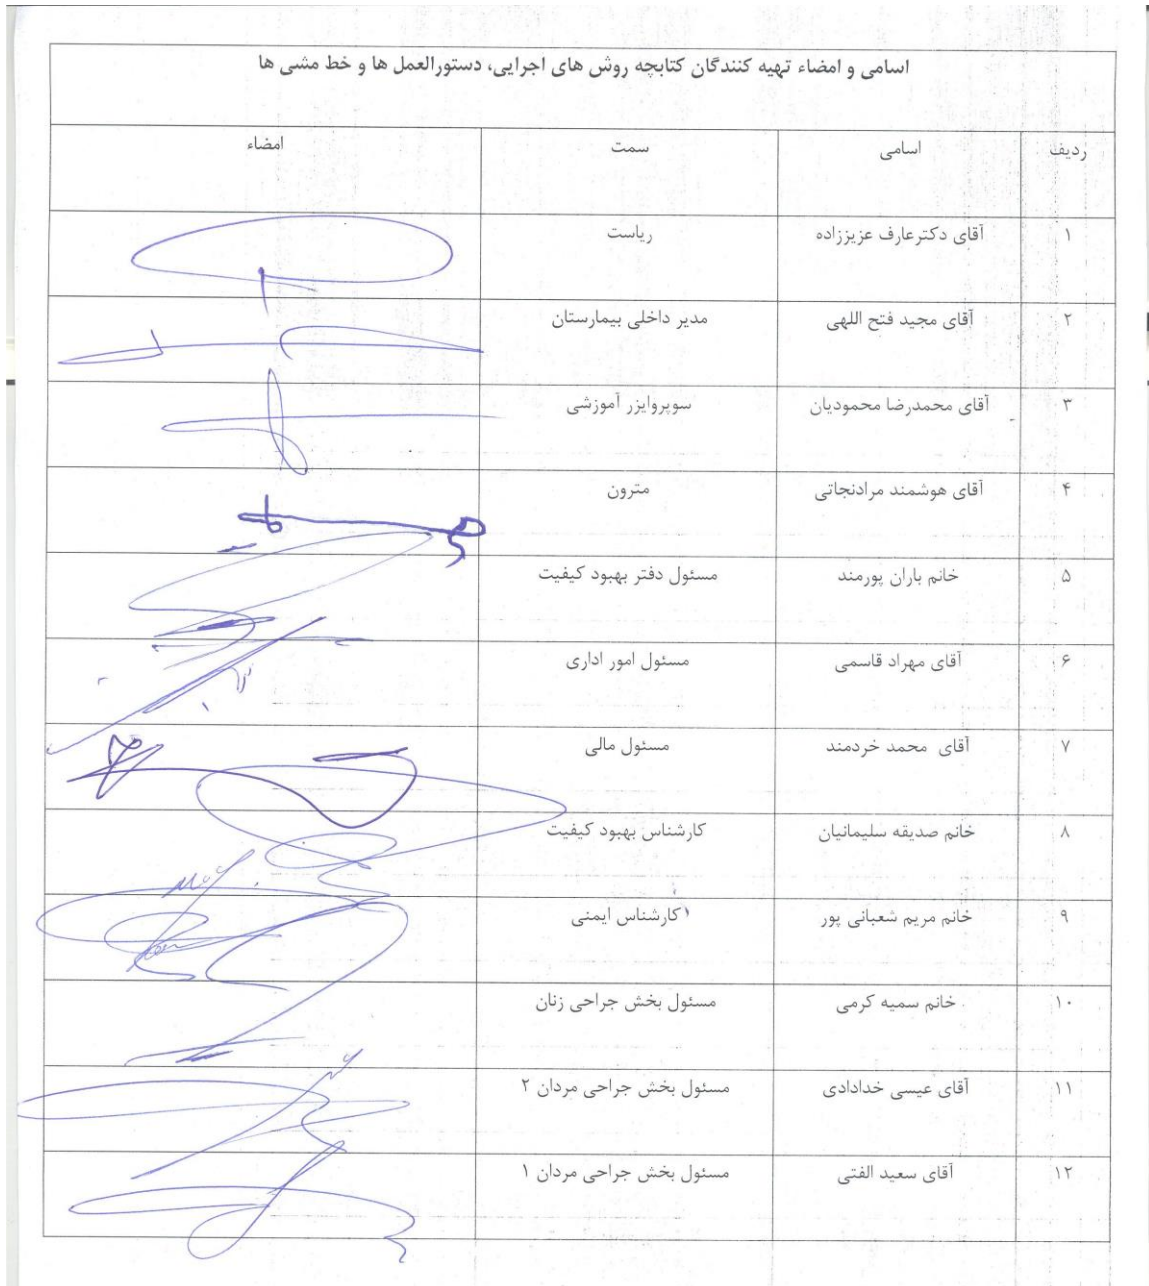 اسامی و امضاء تهیه کنندگان کتابچه روش های اجرایی، دستورالعمل ها و خط مشی ها
ردیف اسامی سمت امضاء
۱ آقای دکترعارف عزیززاده ریاست
۲ آقای مجید فتح اللهی مدیر داخلی بیمارستان
۳ آقای محمدرضا محمودیان سوپروایزر آموزشی
۴ آقای هوشمند مرادنجاتی مترون
۵ خانم باران پورمند مسئول دفتر بهبود کیفیت
۶ آقای مهراد قاسمی مسئول امور اداری
۷ آقای محمد خردمند مسئول مالی
۸ خانم صدیقه سلیمانیان کارشناس بهبود کیفیت
۹ خانم مریم شعبانی پور کارشناس ایمنی
۱۰ خانم سمیه کرمی مسئول بخش جراحی زنان
۱۱ آقای عیسی خدادادی مسئول بخش جراحی مردان ۲
۱۲ آقای سعید الفتی مسئول بخش جراحی مردان ۱